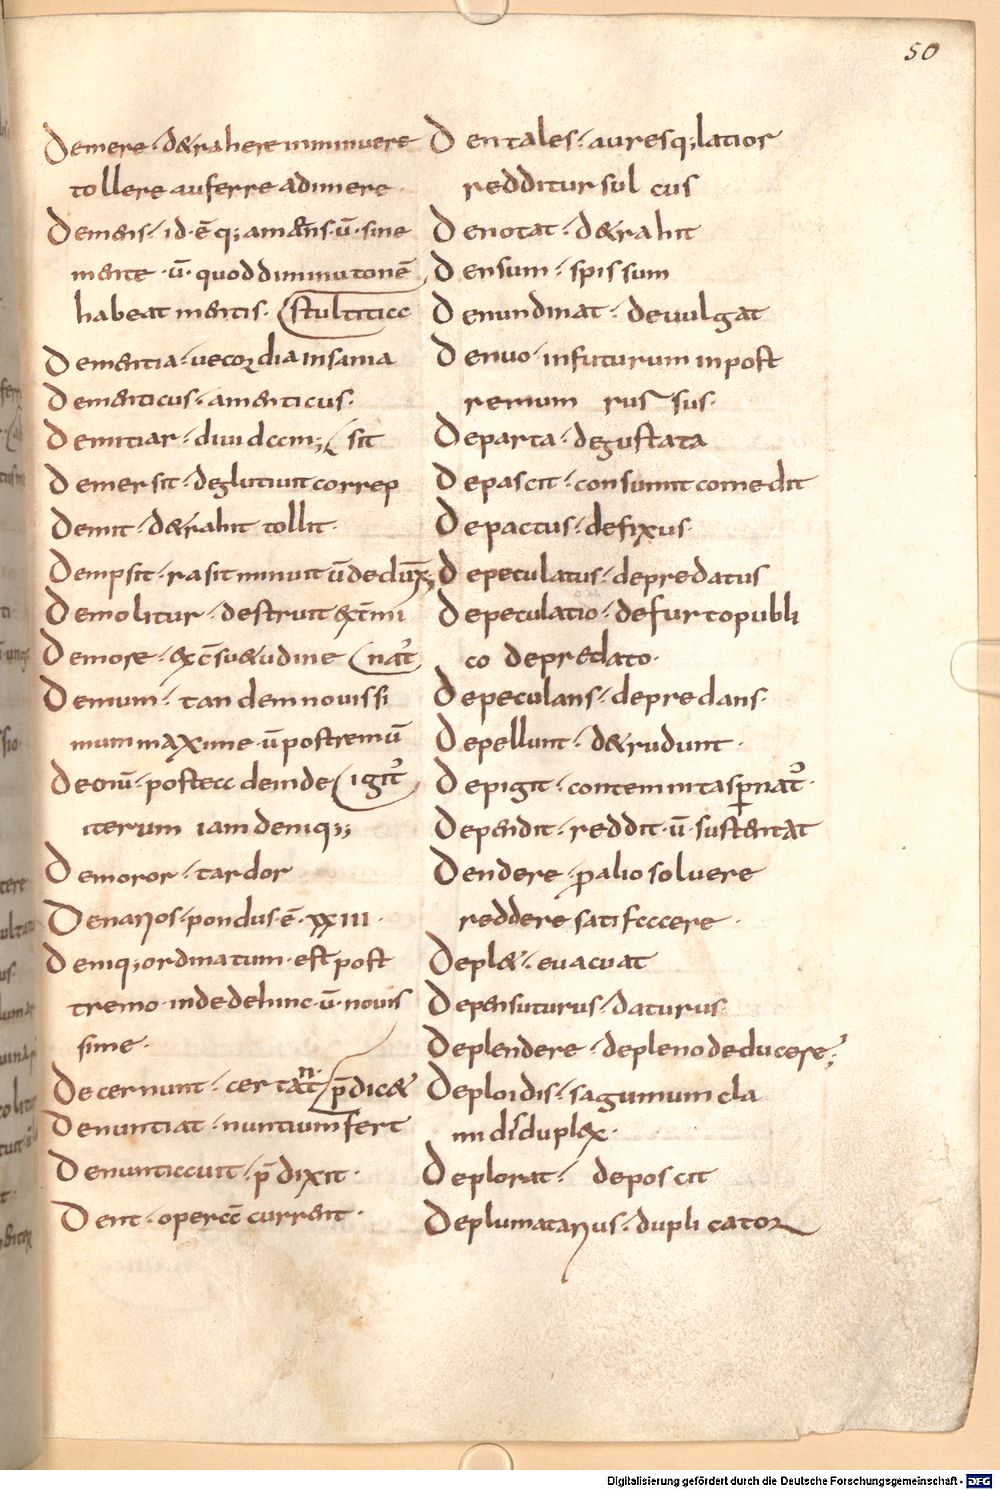 50
Demere · d&rahere inminuere
tollere auferre adimere
Demens · id · ē q; amens · ū · sine
mente · ū · quod diminutionē
habeat mentis · stultitiae
Dementia · uecordia insania
Dementicus · amenticus ·
Demitiar · sit
Demersit · deglutiuit correp
Demit · d&rahit tollit ·
Dempsit · rasit minuit ū dedux
Demolitur · destruit &
Demore · nat̄
Demum · tandem nouissi
mum maxime · ū postremū
Deoiū · postea deinde igit̄
iterum iam deniq;
Demoror · tardor
Denarios · pondus · ē · xxiii ·
Deniq; ordinatum · est post
tremo · inde dehinc · ū · nouis
sime ·
Decernunt · certant p̄dic&
Denuntiat · nuntium fert
Denuntiauit · p̄dixit ·
Dent · current ·
Dentales · aures q; latior
redditur sulcus
Denotat · d&rahit
Densum · spissum
Denundinat · deuulgat
Denuo · infuturum inpost
remum russus ·
Departa · degustata
Depascit · consumit comedit
Depactus · defixus ·
Depeculatus · depredatus
Depeculatio · defurto publi
co depredato ·
Depeculans · depredans ·
Depellunt · d&rudunt ·
Depigit · contemnit aspnat̄ ·
Dependit · reddit · ū · sustentat
Dendere · p alio soluere
reddere satisfacere ·
Depl& · euacuat
Depensuturus · daturus ·
Deplendere · depleno deducere ;
Deploidis · sagum um cla
mi dis duplex ·
Deplorat · deposcit
Deplumatarius · duplicator
Digitalisierung gefördert durch die Deutsche Forschungsgemeinschaft - DFG